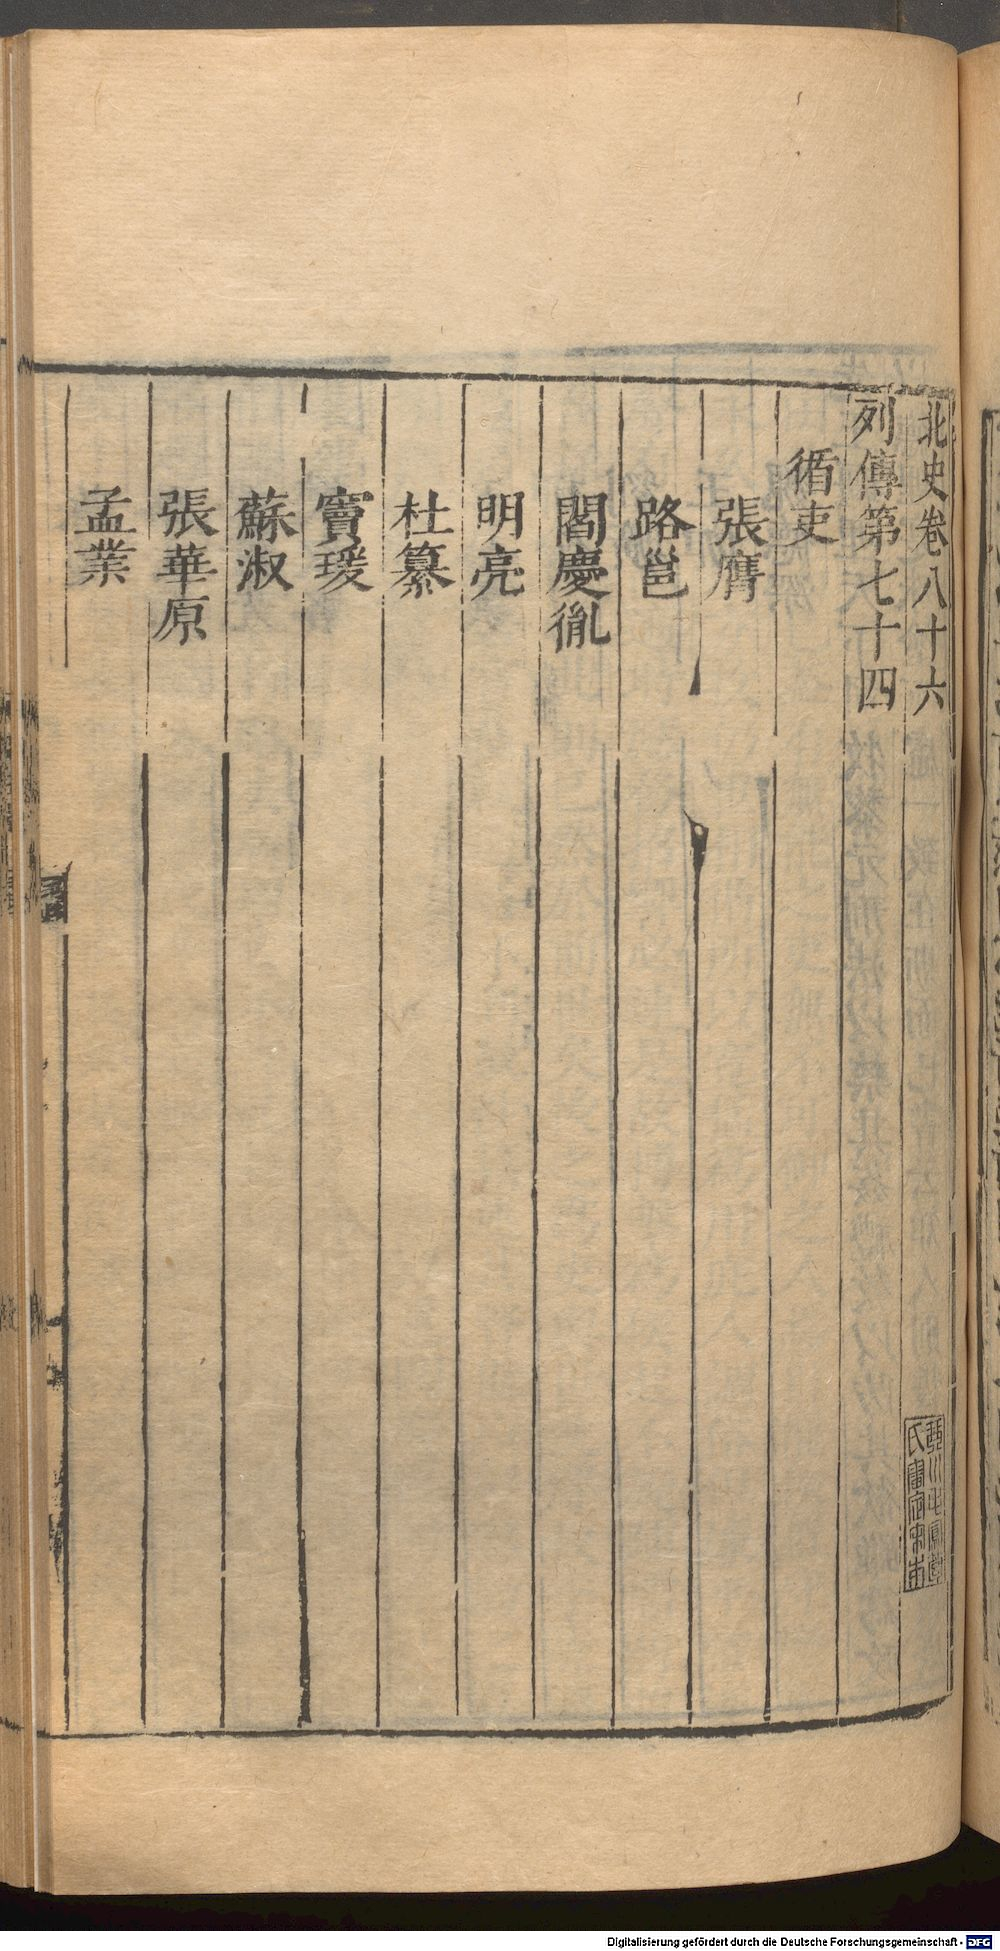 北史卷八十六
列傳第七十四
循吏
張膺
路邕
閻慶胤
明亮
杜纂
竇瑗
蘇淑
張華原
孟業
Digitalisierung gefördert durch die Deutsche Forschungsgemeinschaft - DFG